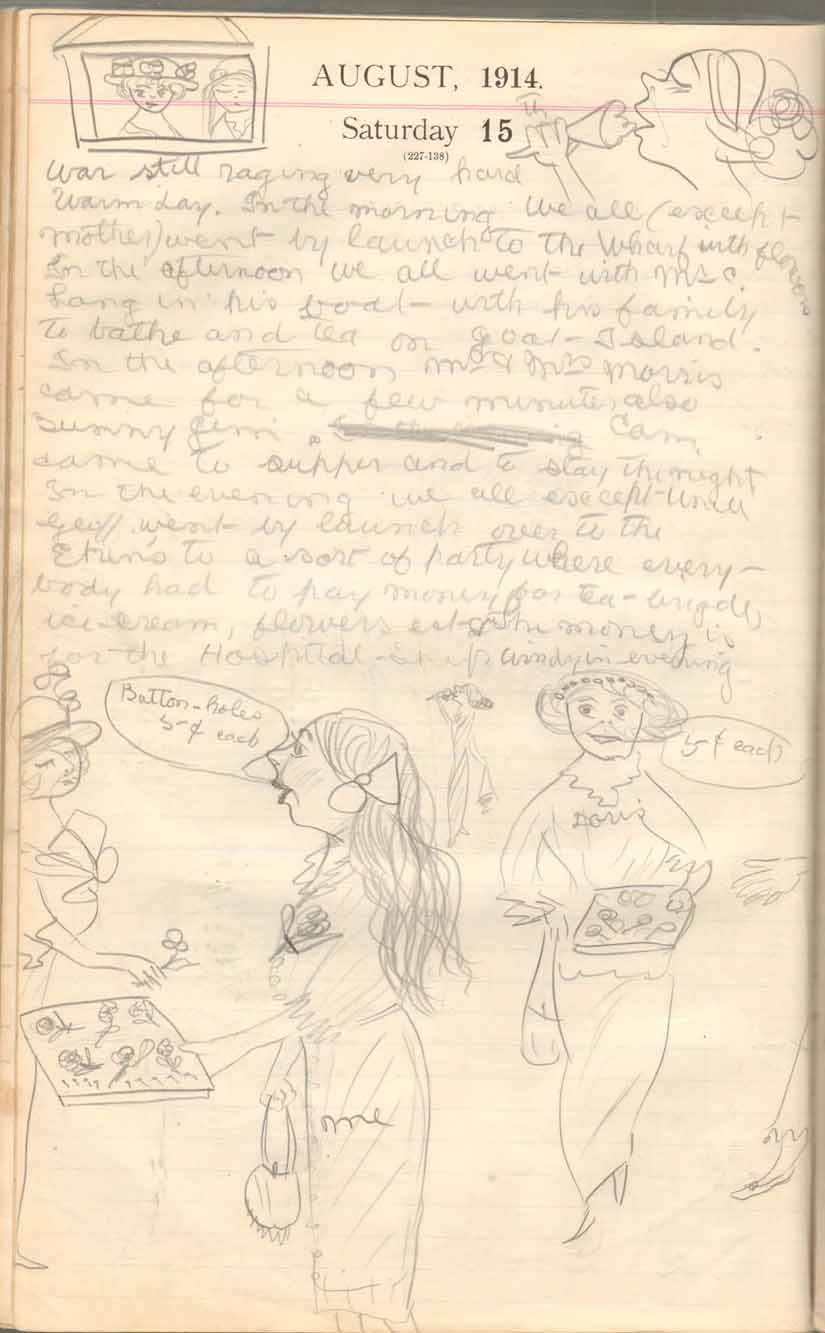 AUGUST, 1914.
Saturday 15
th
(227-138)
War still raging very hard
Warm day. In the morning We all (except
mother) went by launch to the Wharf with flowers
In the afternoon we all went with Mr C.
Lang in his boat with his family
to bathe and tea on Goat Island.
In the afternoon Mr & Mrs Morris
came for a few minutes also
Sunny Jim. Cam
came to supper and to stay the night
In the evening we all except Uncle
Geoff went by launch over to the
to a sort of party where every-
body had to pay money for tea
icecream, flowers ect. The money is
for the Hospital ship in evening
Button-holes
5¢ each
5¢ each
Doris
me